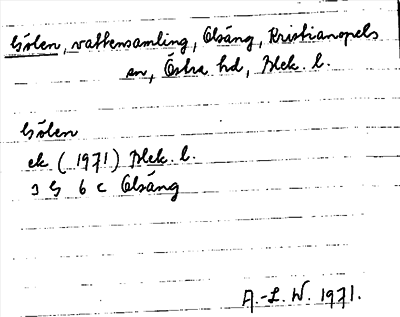 Gölen, vattensamling, Olsäng, Kristianopels
sn, Östra hd, Blek. l.
Gölen
ek (1971) Blek. l.
3 G 6 c Olsäng
A.-L. W. 1971.